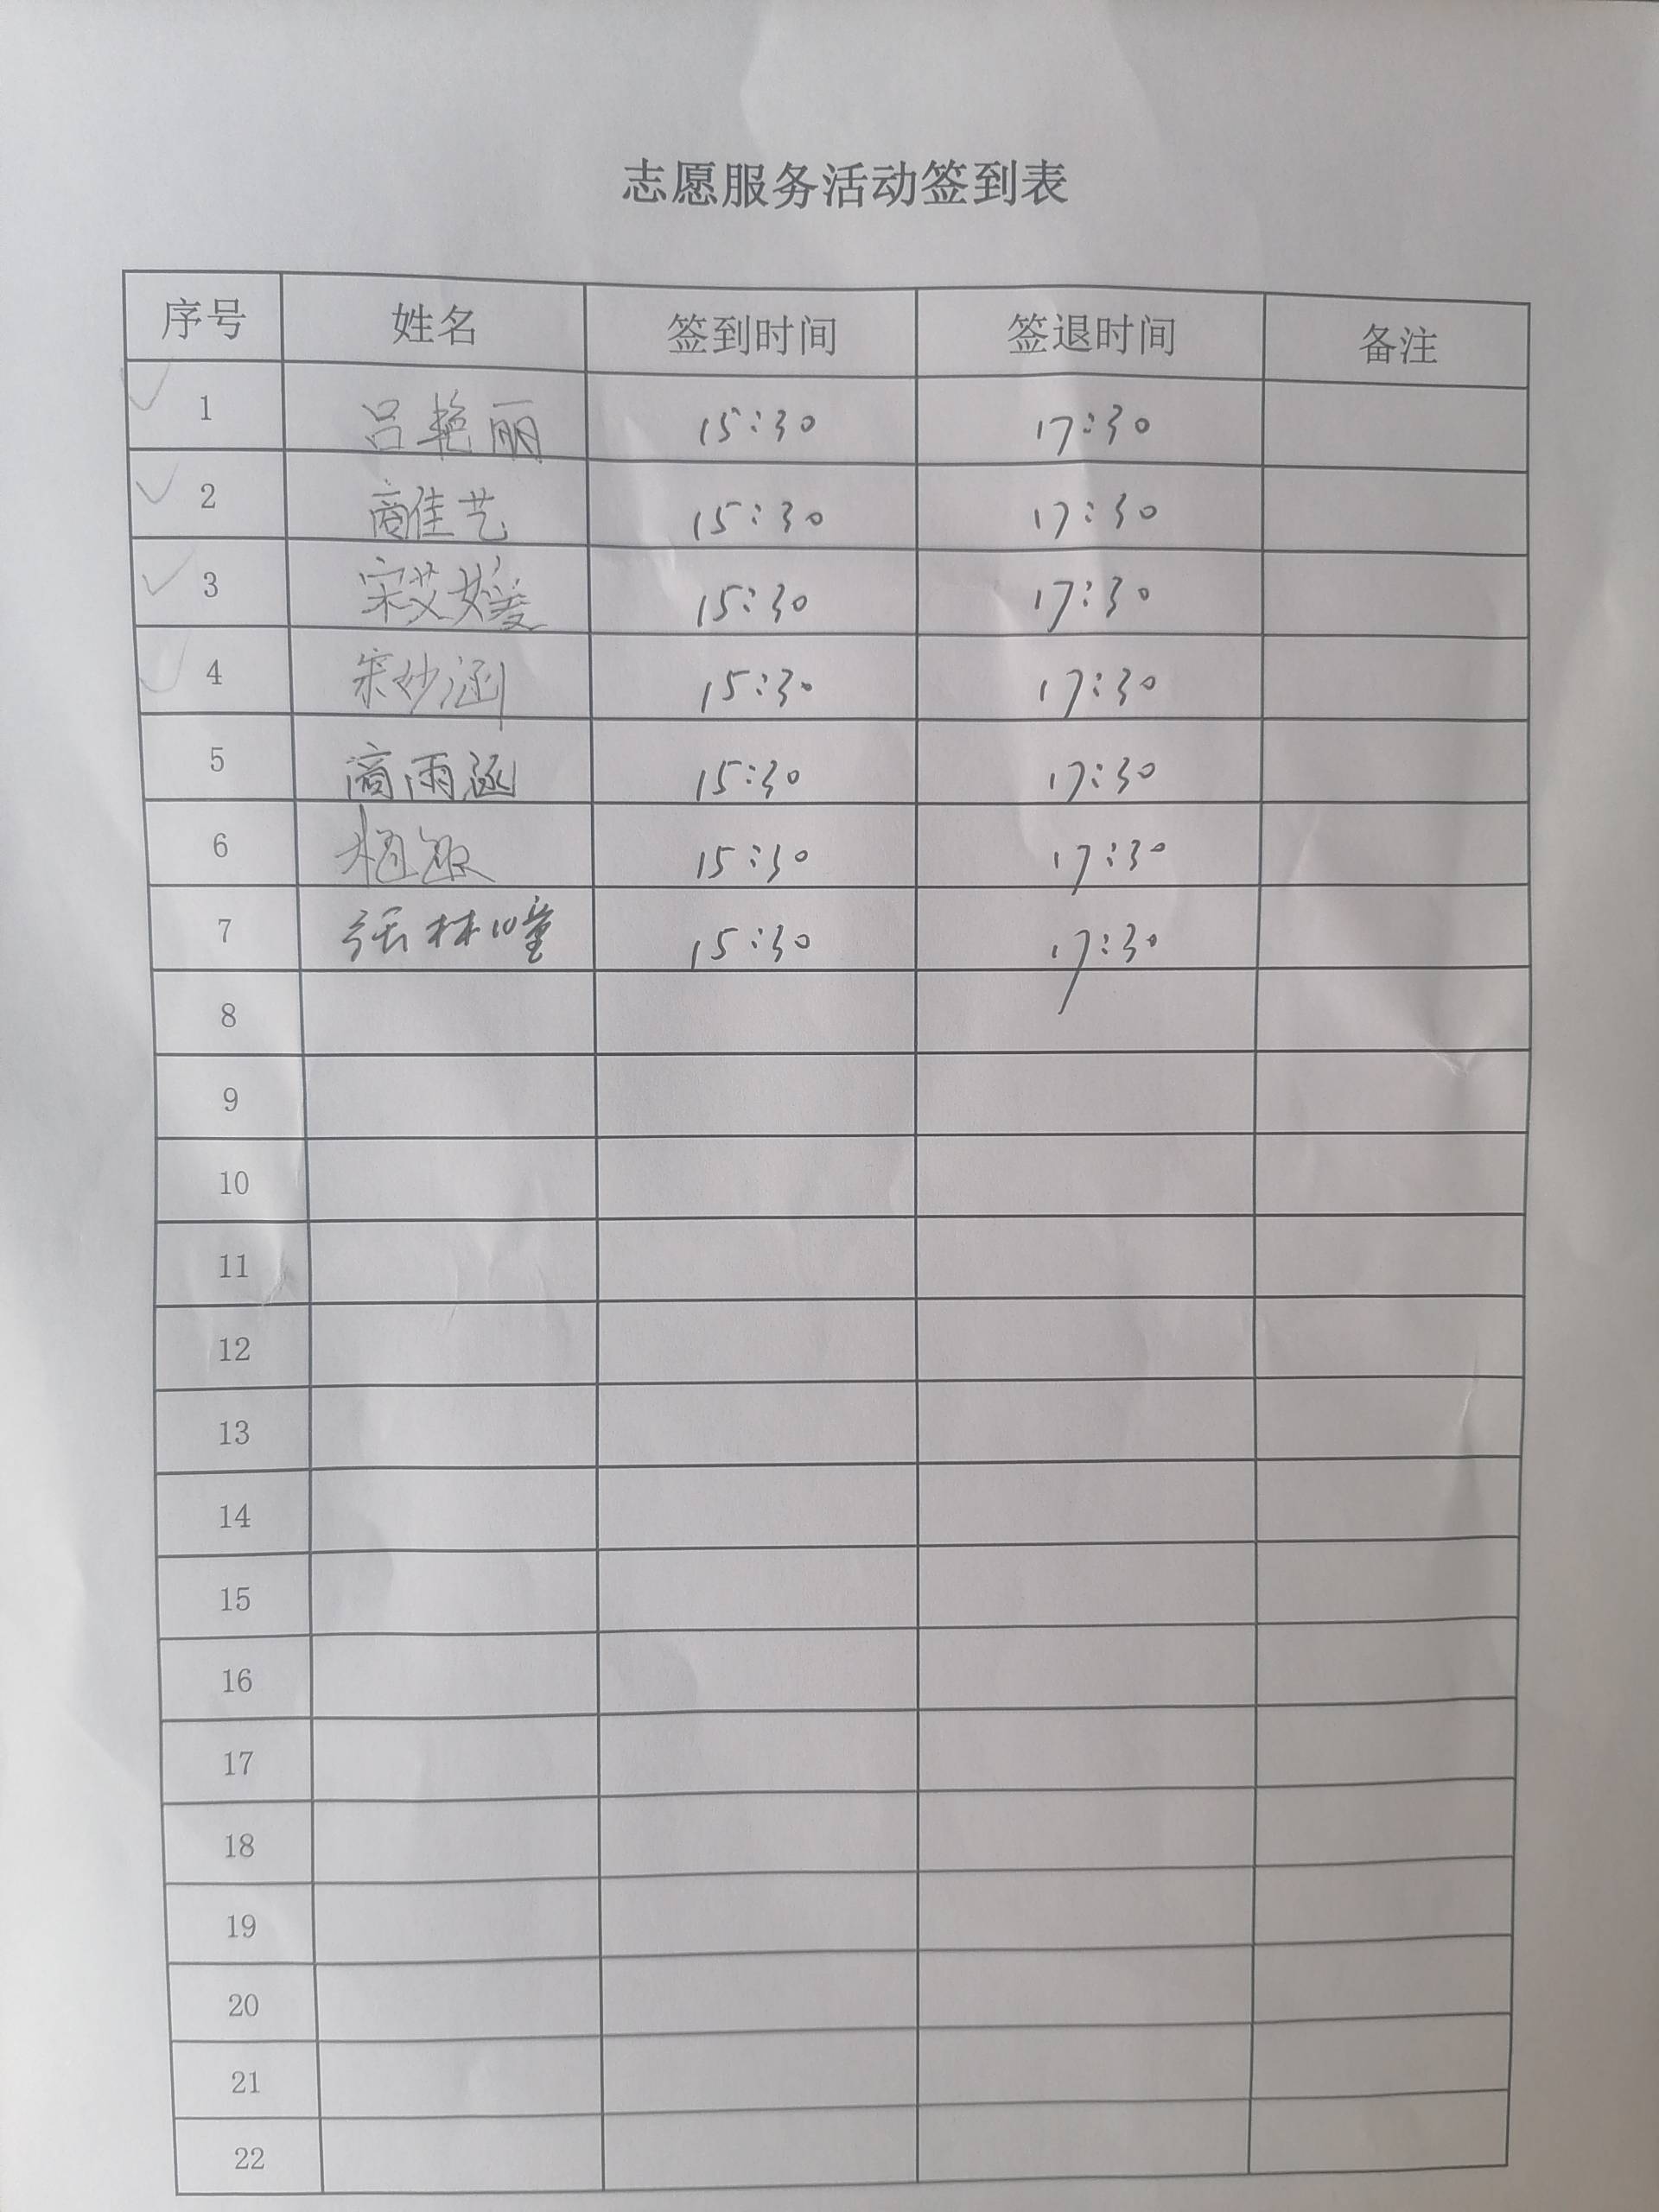 志愿服务活动签到表
序号 姓名 签到时间 签退时间 备注
1 吕艳丽 15:30 17:30
2 商佳艺 15:30 17:30
3 宋艾媛 15:30 17:30
4 宋妙涵 15:30 17:30
5 商雨涵 15:30 17:30
6 植敏 15:30 17:30
7 张林曈 15:30 17:30
8
9
10
11
12
13
14
15
16
17
18
19
20
21
22